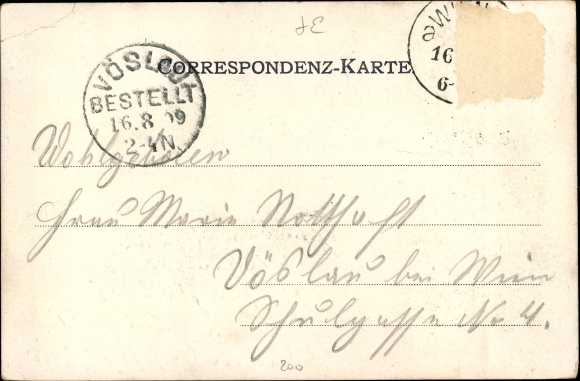 JE
WIEN
16
6-
CORRESPONDENZ-KARTE
VÖSLAU
BESTELLT
16.8.99
2-4N
Wohlgeboren
Frau Marie Notthaft
Vöslau bei Wien
Schulgasse No 4.
200